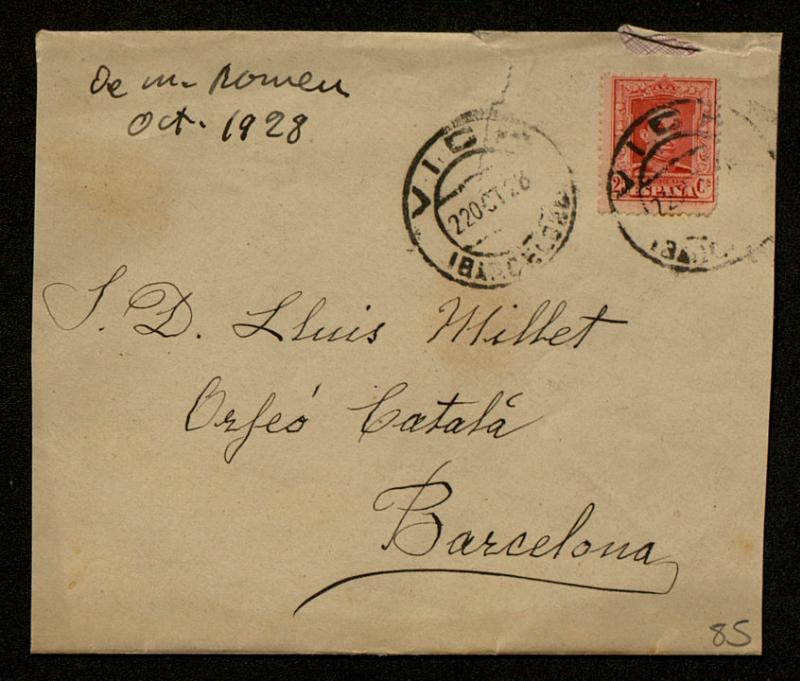 De M. Romeu
Oct. 1928
VICH
22 OCT 28
(BARCELONA)
ESPAÑA
VICH
S. D. Lluis Millet
Orfeó Catalá
Barcelona
85